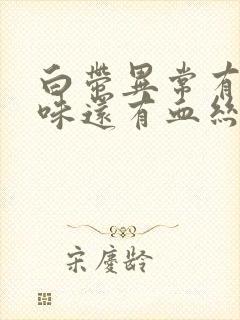 白帶異常有
味還有血絲
宋慶齡